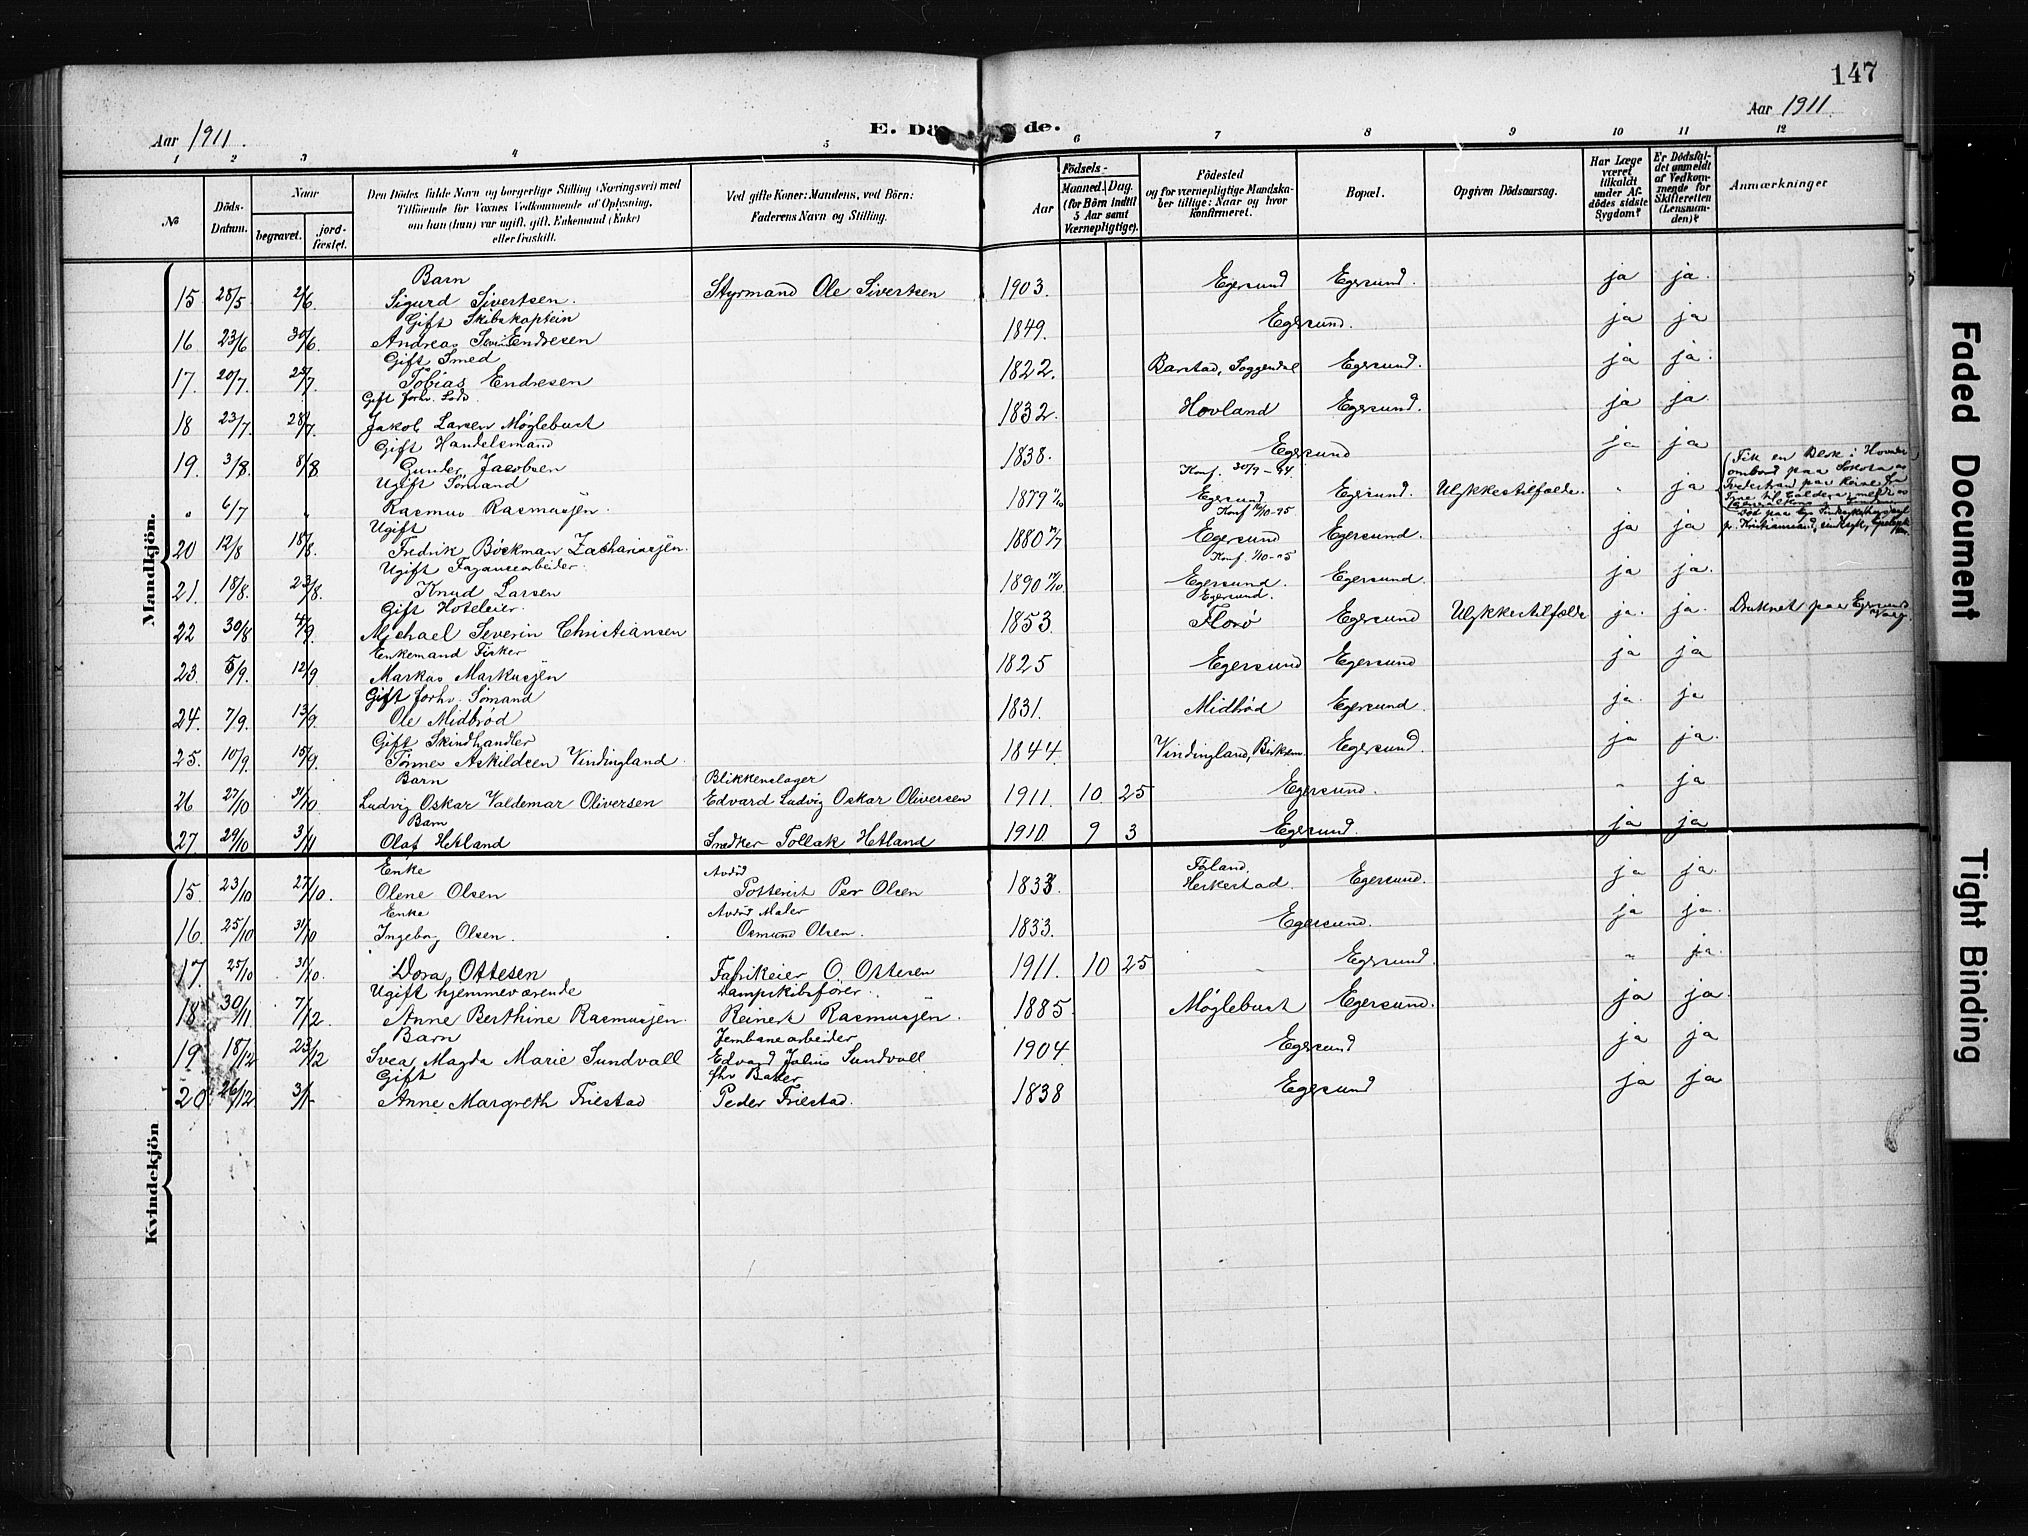 147
Aar 1911.
Aar 1911.
E. Dö de.
1 2 3 4 5 6 7 8 9 10 11 12
No
Döds-Datum.
Naar
begravet.
jordfæstet.
Den Dödes fulde Navn og borgerlige Stilling (Næringsvei) med
Tilföiende for Voxnes Vedkommende af Oplysning,
om han (hun) var ugift, gift, Enkemand (Enke)
eller fraskilt.
Ved gifte Koner: Mandens, ved Börn:
Faderens Navn og Stilling.
Födsels-
Aar
Maaned. Dag.
(for Börn indtil
5 Aar samt
Værnepligtige).
Födested
og for værnepligtige Mandskaber tillige: Naar og hvor
konfirmeret.
Bopæl.
Opgiven Dödsaarsag.
Har Læge
været
tilkaldt
under Afdödes sidste
Sygdom?
Er Dödsfaldet anmeldt
af Vedkommende for
Skifteretten
(Lensmanden)?
Anmærkninger
Mandkjön.
Barn
15 28/5 2/6 Sigurd Sivertsen. Styrmand Ole Sivertsen 1903. Egersund Egersund. ja ja.
Gift Skibskaptein
16 23/6 30/6 Andreas Severin Endresen 1849. Egersund. ja ja
Gift Smed
17. 20/7 25/7 Tobias Endresen 1822. Barstad, Soggendal Egersund. ja ja.
Gift forhv. Lods.
18 23/7 28/7 Jakob Larsen Møglebust 1832. Hovland Egersund. ja ja.
Gift Handelsmand
19. 3/8. 8/8 Gunder Jacobsen 1838. Egersund ja ja
Ugift Sømand Konf. 30/9-94.
" 6/7 " Rasmus Rasmussen. 1879 11/10 Egersund Egersund. Ulykkestilfælde. " ja (Fik en Blok i Hovedet ombord paa
Ugift Konf 10/10-95
20 12/8 18/8. Fredrik Böckman Zachariassen. 1880 17/7 Egersund Egersund. ja ja
Ugift Fajansearbeider. Konf. 1/10-05
21. 18/8. 23/8. Knud Larsen 1890 14/10 Egersund. Egersund. ja ja.
Gift Hoteleier. Egersund.
22 30/8 4/9. Michael Severin Christiansen 1853. Florø Egersund Ulykkestilfælde ja. ja. Druknet paa Egersund Vaag.
Enkemand Fisker
23. 5/9. 12/9 Markus Markussen 1825 Egersund Egersund ja ja
Gift forhv. Sømand
24. 7/9. 13/9. Ole Midbrød 1831. Midbrød Egersund. ja. ja
Gift Skindhandler
25. 10/9. 15/9. Tønnes Askildsen Vindingland 1844. Vindingland, Birkrem Egersund. ja ja.
Barn Blikkenslager
26 27/10 31/10 Ludvig Oskar Valdemar Oliversen Edvard Ludvig Oskar Oliversen 1911. 10 25 Egersund. " ja
Barn
27. 29/10 3/11 Olaf Hetland Snedker Tollak Hetland 1910 9 3 Egersund. ja ja
Kvindekjön
Enke Avdød Førland,
15. 23/10 27/10. Olene Olsen Pottemst Per Olsen 1833. Heskestad. Egersund. ja ja.
Enke Avdød Maler
16. 25/10 31/10 Ingeborg Olsen. Osmund Olsen. 1833. Egersund. ja ja.
17. 25/10 31/10. Dora Ottesen Fabrikeier O. Ottesen 1911. 10 25 " Egersund. " ja.
Ugift hjemmeværende Dampskibsfører.
18 30/11 7/12. Anne Berthine Rasmussen. Reinert Rasmussen. 1885. Møglebust Egersund. ja ja.
Barn Jernbanearbeider
19 18/12 23/12 Svea Magda Marie Sundvall Edvard Julius Sundvall 1904 Egersund ja ja
Gift fhv Baker
20 26/12 3/1 Anne Margreth Friestad Peder Friestad. 1838 Egersund ja ja
Faded Document
Tight Binding